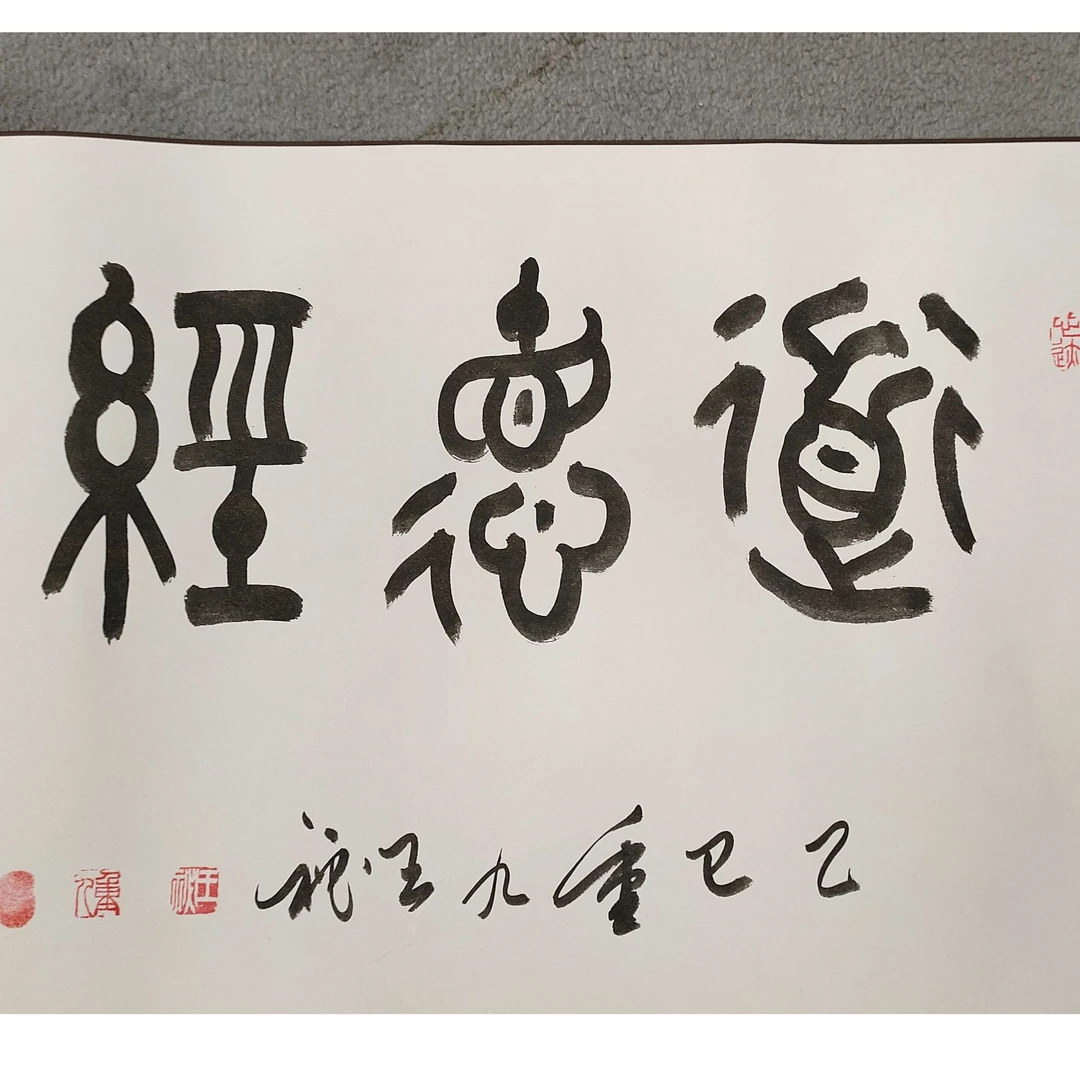 道德經
乙巳重九汪
重九